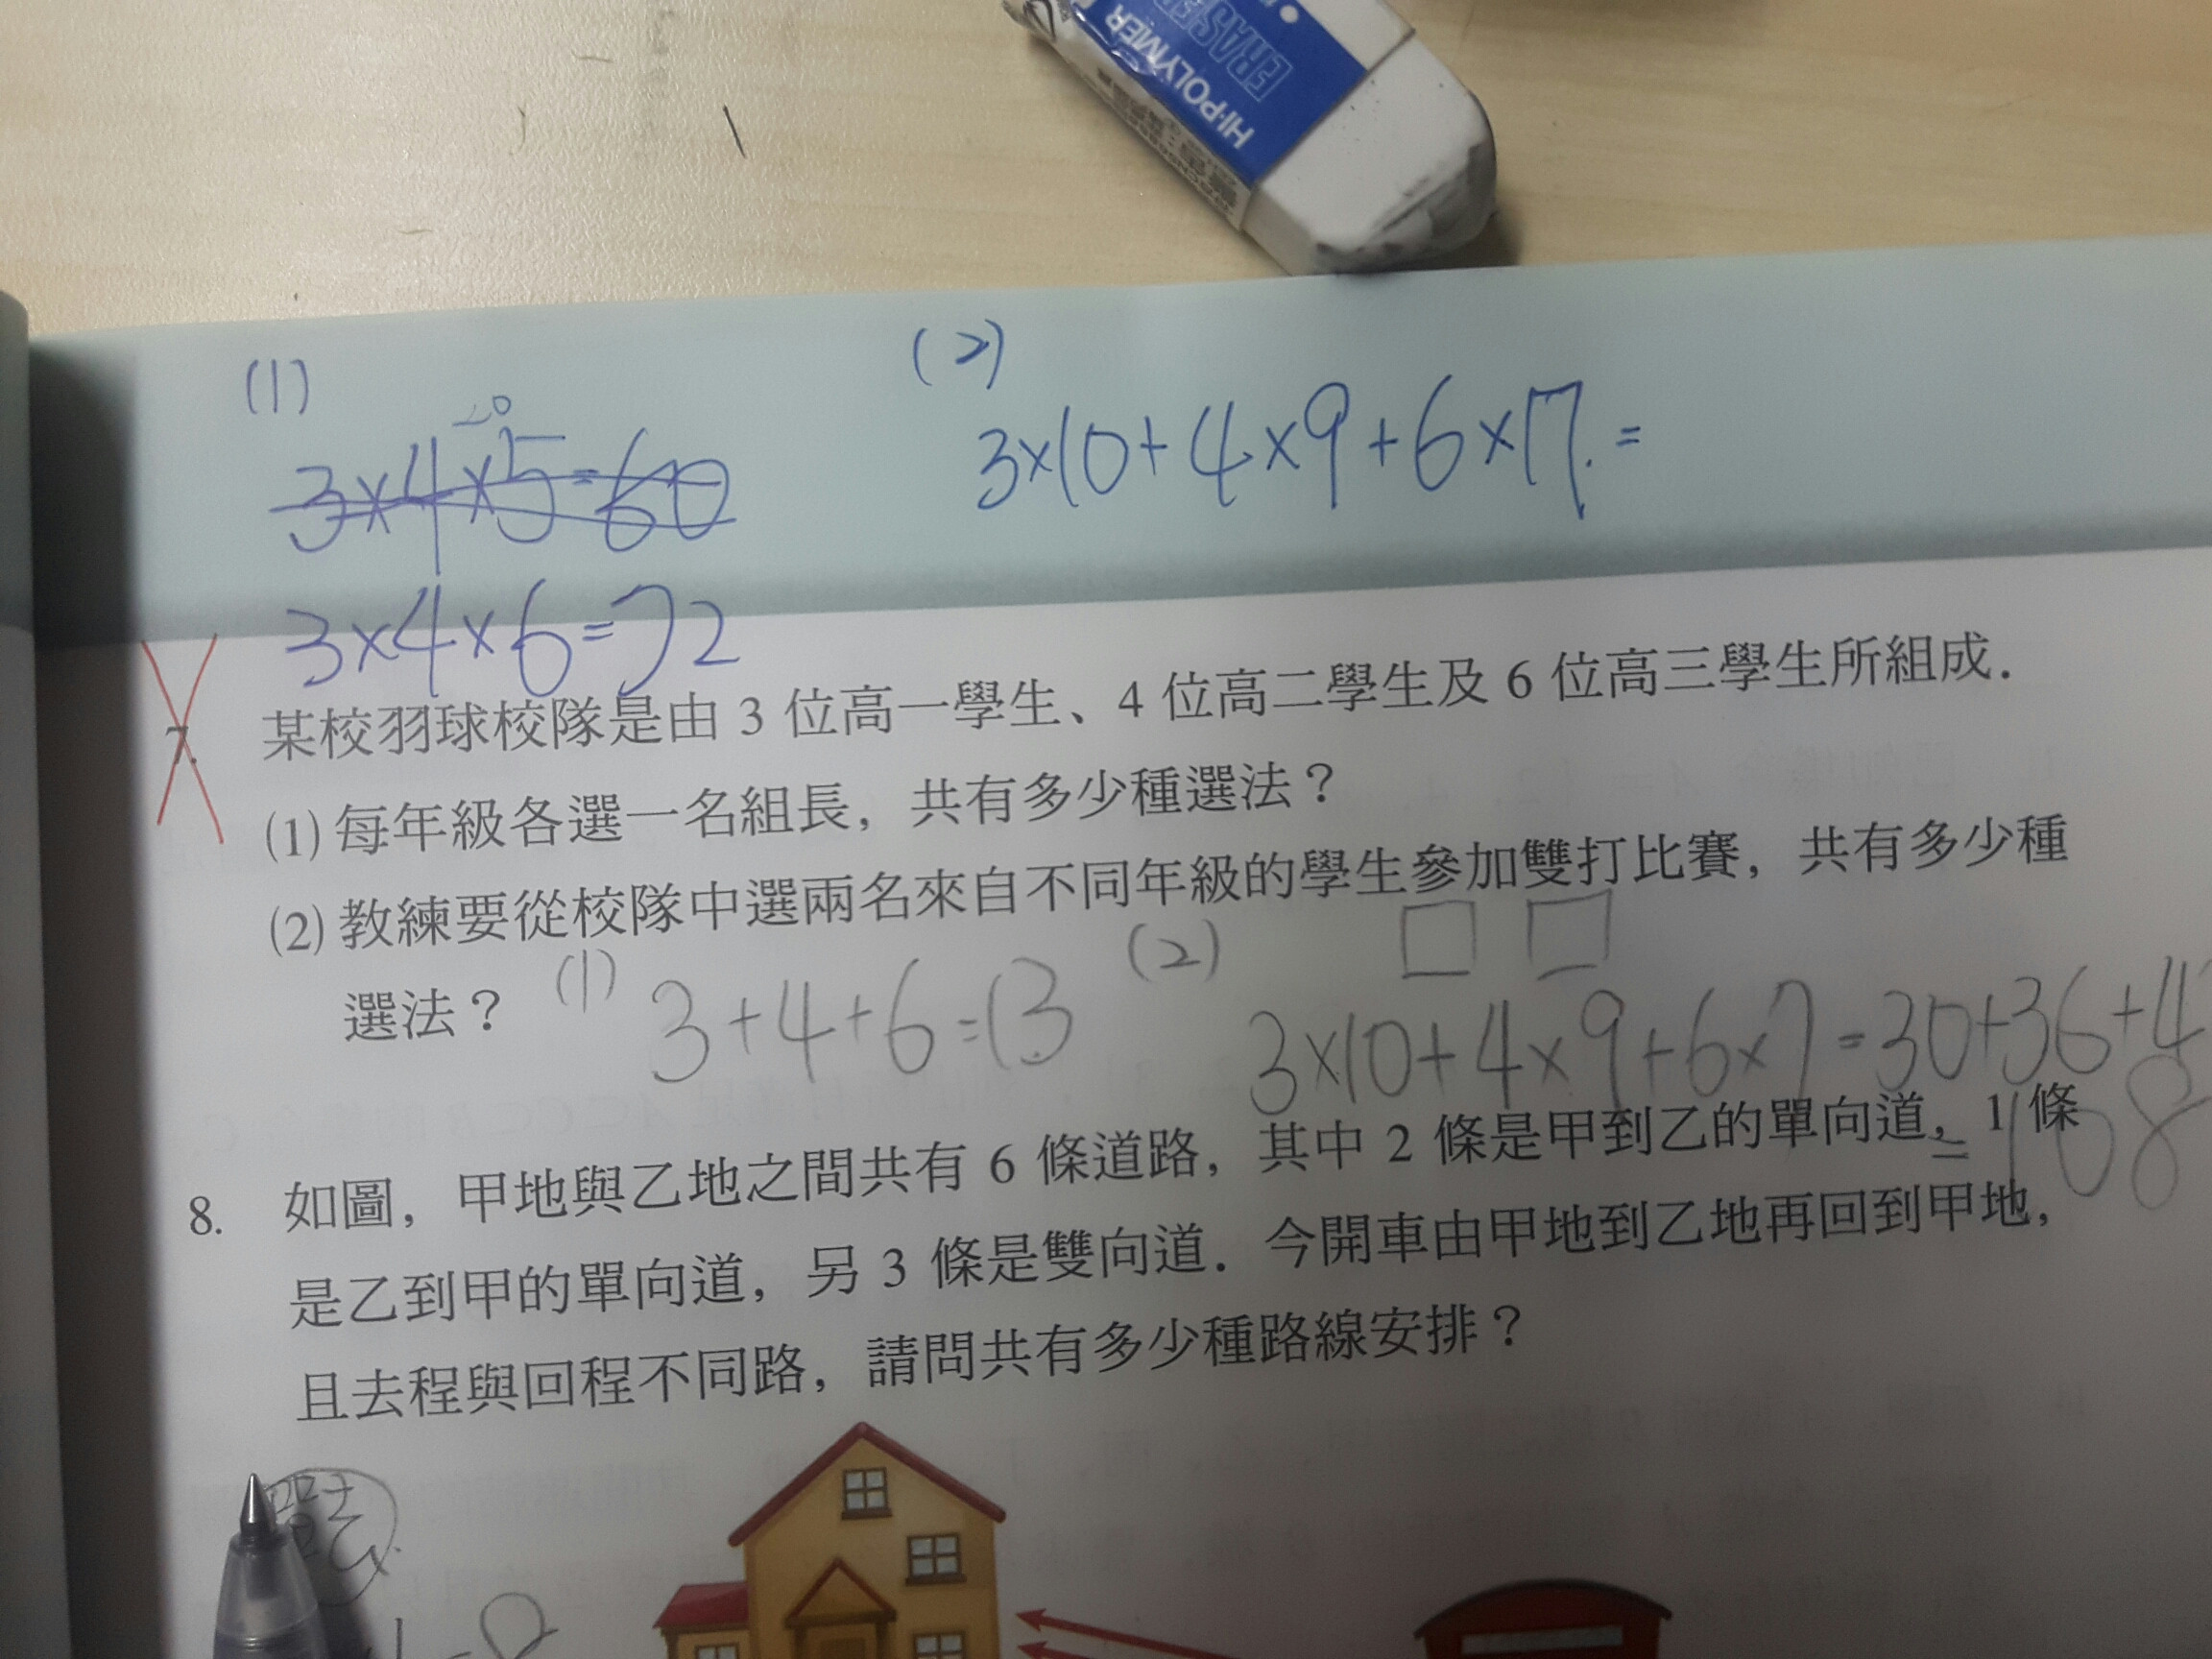 HI-POLYMER
ERASER
(1)
20
3×4×5=60
3×4×6=72
(2)
3×10+4×9+6×7.=
7. 某校羽球校隊是由 3 位高一學生、4 位高二學生及 6 位高三學生所組成.
(1) 每年級各選一名組長，共有多少種選法？
(2) 教練要從校隊中選兩名來自不同年級的學生參加雙打比賽，共有多少種
選法？
(1) 3+4+6=13
(2) 3×10+4×9+6×7=30+36+4
=108
8. 如圖，甲地與乙地之間共有 6 條道路，其中 2 條是甲到乙的單向道，1 條
是乙到甲的單向道，另 3 條是雙向道．今開車由甲地到乙地再回到甲地，
且去程與回程不同路，請問共有多少種路線安排？